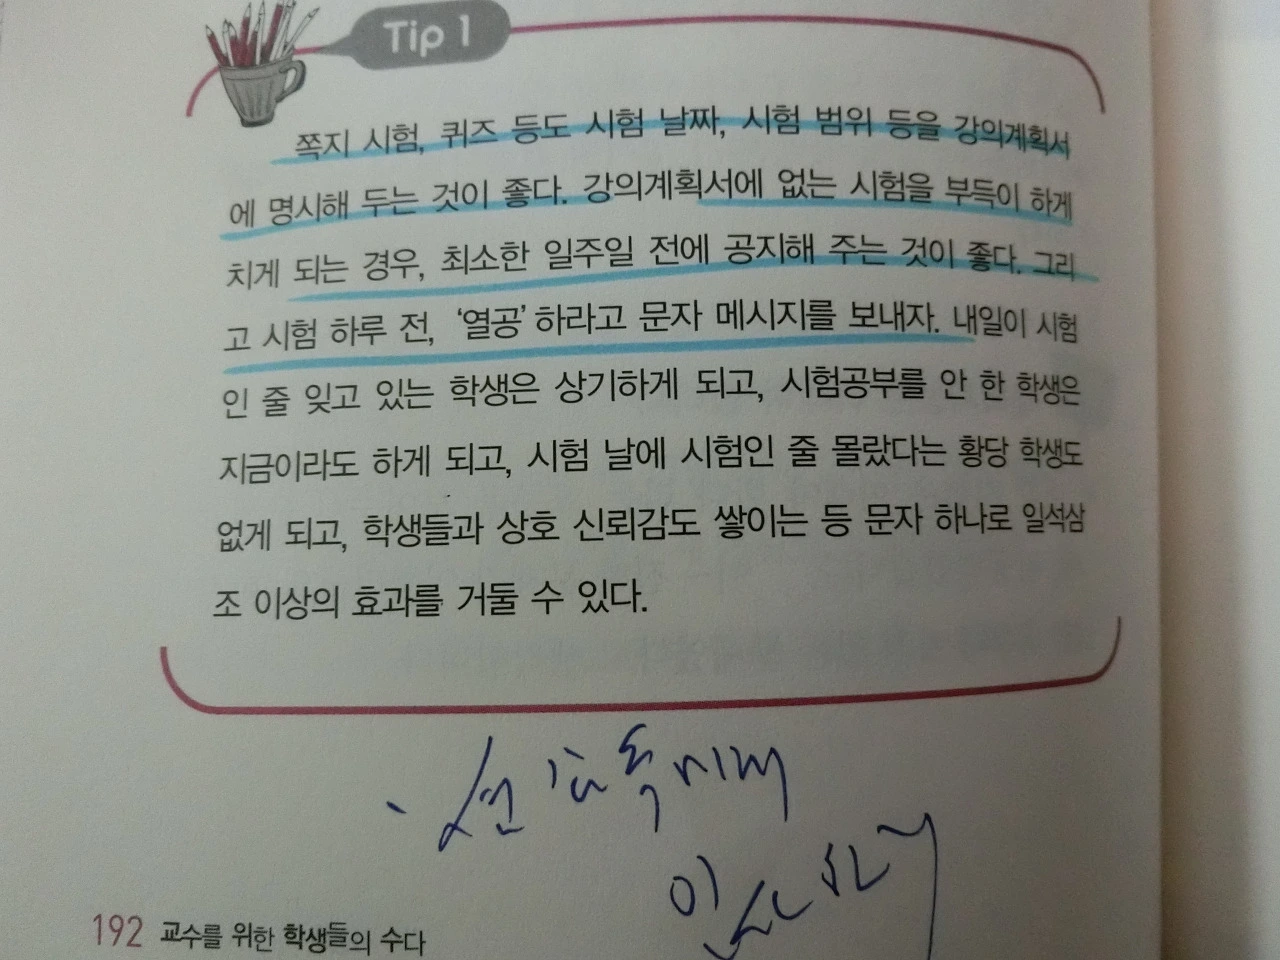 Tip 1
쪽지 시험, 퀴즈 등도 시험 날짜, 시험 범위 등을 강의계획서
에 명시해 두는 것이 좋다. 강의계획서에 없는 시험을 부득이 하게
치게 되는 경우, 최소한 일주일 전에 공지해 주는 것이 좋다. 그리
고 시험 하루 전, ‘열공’ 하라고 문자 메시지를 보내자. 내일이 시험
인 줄 잊고 있는 학생은 상기하게 되고, 시험공부를 안 한 학생은
지금이라도 하게 되고, 시험 날에 시험인 줄 몰랐다는 황당 학생도
없게 되고, 학생들과 상호 신뢰감도 쌓이는 등 문자 하나로 일석삼
조 이상의 효과를 거둘 수 있다.
192 교수를 위한 학생들의 수다